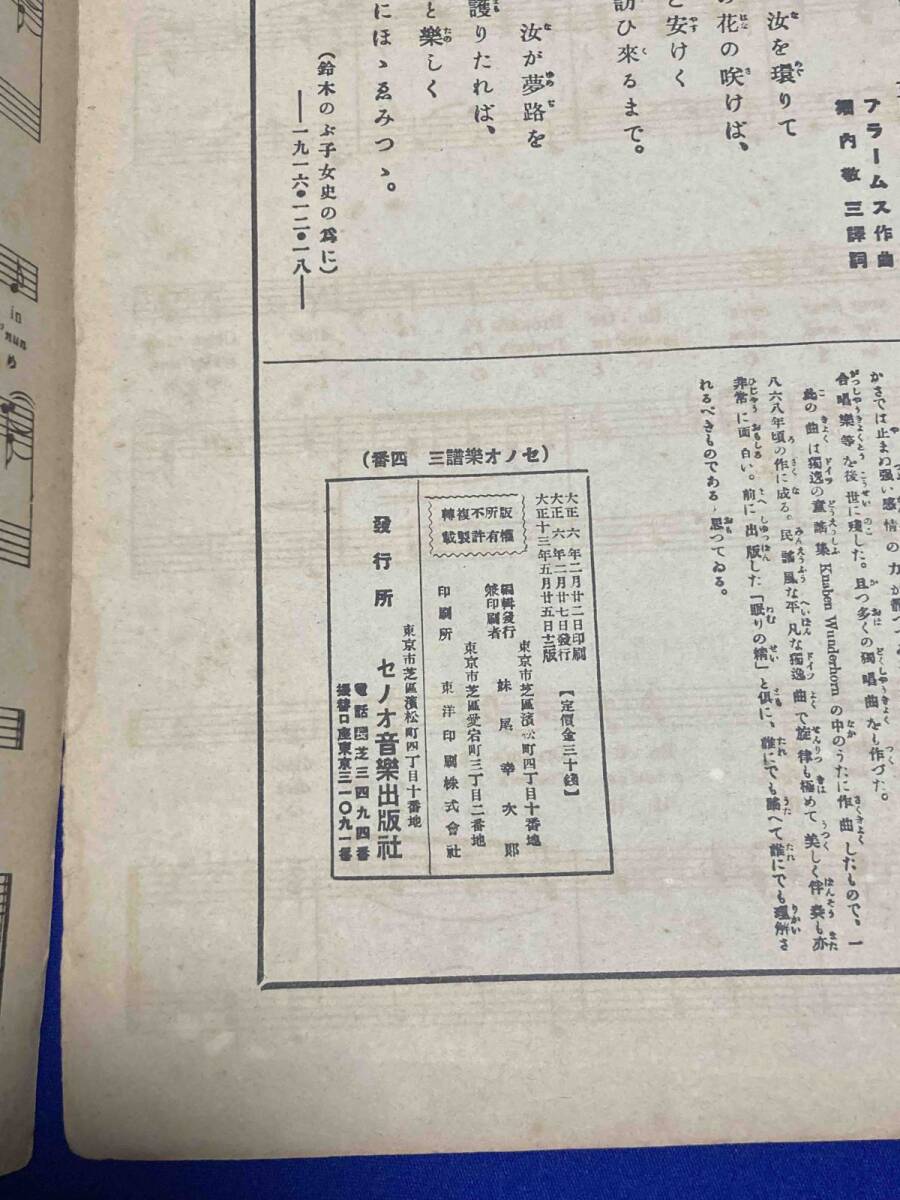 ブラームス作曲
堀内敬三譯詞
汝を環りて
の花の咲けば、
と安けく
訪ひ來るまで。
汝が夢路を
護りたれば、
と樂しく
にほゝゑみつゝ。
(鈴木のぶ子女史の爲に)
——一九一六・一二・一八——
かさでは止まぬ强い感情の力が
合唱樂等を後世に殘した。且つ多くの獨唱曲をも作つた。
此の曲は獨逸の童謠集 Knaben Wunderhorn の中のうたに作曲したもので、一
八六八年頃の作に成る。民謠風な平凡な獨逸曲で旋律も極めて美しく伴奏も亦
非常に面白い。前に出版した「眠りの精」と倶に、誰にでも謠へて誰にでも理解さ
れるべきものであると思つてゐる。
(セノオ樂譜三 四番)
大正六年二月廿二日印刷
大正六年二月廿七日發行
大正十三年五月廿五日十三版
【定價金三十錢】
版權所有
不許複製
轉載
東京市芝區濱松町四丁目十番地
編輯發行兼印刷者 妹尾幸次郎
東京市芝區愛宕町三丁目二番地
印刷所 東洋印刷株式會社
東京市芝區濱松町四丁目十番地
發行所 セノオ音樂出版社
電話芝三四九四番
振替口座東京三一〇九一番
in
nun
め